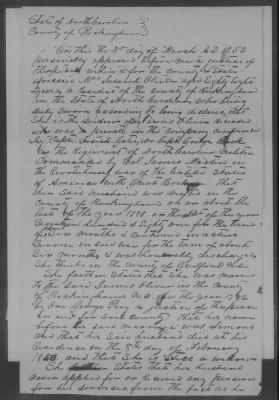 State of North Carolina
County of Rockingham
On this the 3rd day of March A.D. 1852
personally appeared before me a Justice of
the peace within & for the County & State
aforesaid Mrs Oliver aged Eighty Eight
years, a resident of the County of Rockingham
in the State of North Carolina who being
duly sworn according to law, declares that
She is the widow of James Oliver deceased
who was a private in the Company commanded
by Capt
in the Regiment of North Carolina Militia
Commanded by Col James Martin in
the Revolutionary war of the United States
of America with Great Britain. That
her said husband was drafted in the
County of Rockingham on or about the
last of the year 1780
hundred & Eighty one for the term
of Six Months & Continued in actual
Service in said war for the term of about
Six Months & was honorably discharged
She further States that She was married
to the said James Oliver in the County
of Rockingham N.C. in the year 1792
by One George a Justice of the peace
in and for said County that her name
before her said marriage was
and that her said husband died at his
residence on the 8th day of February
and that She is still a widow
She States that her husband
never applied for or received any pension
for his services, from the fact as he